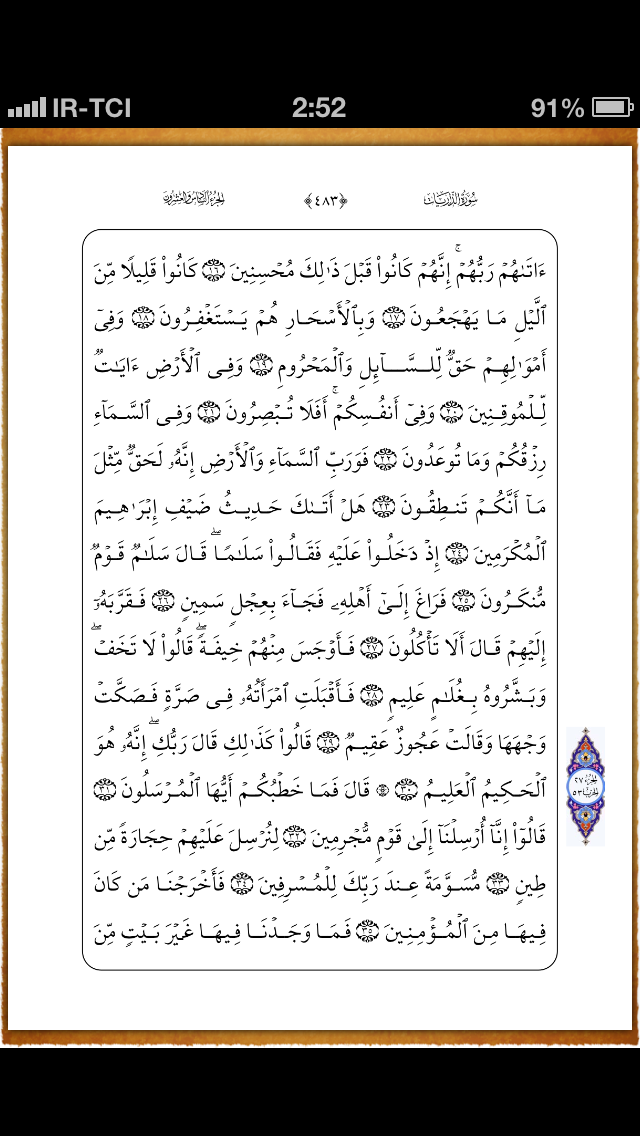 IR-TCI 2:52 91%
سُورَةُ الذَّارِيَات ﴿٤٨٣﴾ الجُزْءُ السَّادِسُ وَالعِشْرُون
ءَاتَىٰهُمْ رَبُّهُمْ ۚ إِنَّهُمْ كَانُوا۟ قَبْلَ ذَٰلِكَ مُحْسِنِينَ ١٦ كَانُوا۟ قَلِيلًا مِّنَ
ٱلَّيْلِ مَا يَهْجَعُونَ ١٧ وَبِٱلْأَسْحَارِ هُمْ يَسْتَغْفِرُونَ ١٨ وَفِىٓ
أَمْوَٰلِهِمْ حَقٌّ لِّلسَّآئِلِ وَٱلْمَحْرُومِ ١٩ وَفِى ٱلْأَرْضِ ءَايَٰتٌ
لِّلْمُوقِنِينَ ٢٠ وَفِىٓ أَنفُسِكُمْ ۚ أَفَلَا تُبْصِرُونَ ٢١ وَفِى ٱلسَّمَآءِ
رِزْقُكُمْ وَمَا تُوعَدُونَ ٢٢ فَوَرَبِّ ٱلسَّمَآءِ وَٱلْأَرْضِ إِنَّهُۥ لَحَقٌّ مِّثْلَ
مَآ أَنَّكُمْ تَنطِقُونَ ٢٣ هَلْ أَتَىٰكَ حَدِيثُ ضَيْفِ إِبْرَٰهِيمَ
ٱلْمُكْرَمِينَ ٢٤ إِذْ دَخَلُوا۟ عَلَيْهِ فَقَالُوا۟ سَلَٰمًا ۖ قَالَ سَلَٰمٌ قَوْمٌ
مُّنكَرُونَ ٢٥ فَرَاغَ إِلَىٰٓ أَهْلِهِۦ فَجَآءَ بِعِجْلٍ سَمِينٍ ٢٦ فَقَرَّبَهُۥٓ
إِلَيْهِمْ قَالَ أَلَا تَأْكُلُونَ ٢٧ فَأَوْجَسَ مِنْهُمْ خِيفَةً ۖ قَالُوا۟ لَا تَخَفْ ۖ
وَبَشَّرُوهُ بِغُلَٰمٍ عَلِيمٍ ٢٨ فَأَقْبَلَتِ ٱمْرَأَتُهُۥ فِى صَرَّةٍ فَصَكَّتْ
وَجْهَهَا وَقَالَتْ عَجُوزٌ عَقِيمٌ ٢٩ قَالُوا۟ كَذَٰلِكِ قَالَ رَبُّكِ ۖ إِنَّهُۥ هُوَ
ٱلْحَكِيمُ ٱلْعَلِيمُ ٣٠ ۞ قَالَ فَمَا خَطْبُكُمْ أَيُّهَا ٱلْمُرْسَلُونَ ٣١
قَالُوٓا۟ إِنَّآ أُرْسِلْنَآ إِلَىٰ قَوْمٍ مُّجْرِمِينَ ٣٢ لِنُرْسِلَ عَلَيْهِمْ حِجَارَةً مِّن
طِينٍ ٣٣ مُّسَوَّمَةً عِندَ رَبِّكَ لِلْمُسْرِفِينَ ٣٤ فَأَخْرَجْنَا مَن كَانَ
فِيهَا مِنَ ٱلْمُؤْمِنِينَ ٣٥ فَمَا وَجَدْنَا فِيهَا غَيْرَ بَيْتٍ مِّنَ
الجزء ٢٧
الحزب ٥٣